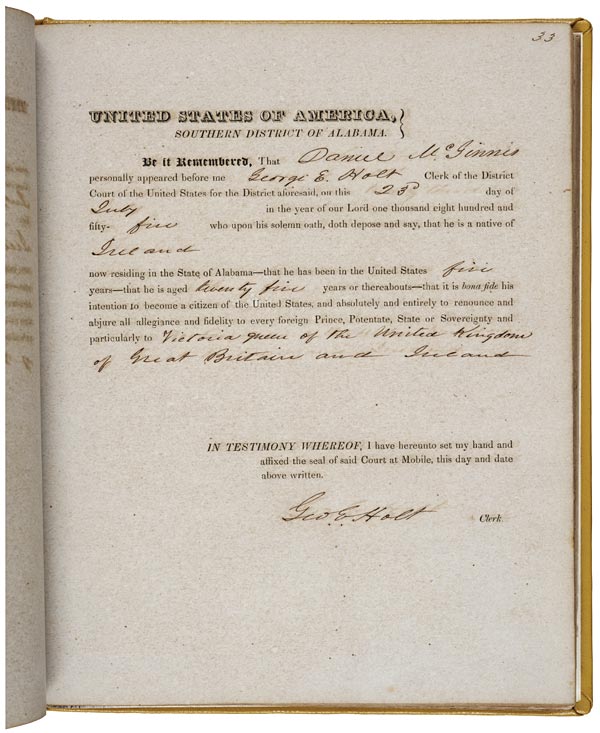 33
UNITED STATES OF AMERICA,
SOUTHERN DISTRICT OF ALABAMA.
Be it Remembered, That Daniel McGinnis
personally appeared before me George E. Holt Clerk of the District
Court of the United States for the District aforesaid, on this 23d day of
July in the year of our Lord one thousand eight hundred and
fifty- five who upon his solemn oath, doth depose and say, that he is a native of
Ireland
now residing in the State of Alabama—that he has been in the United States five
years—that he is aged twenty five years or thereabouts—that it is bona fide his
intention to become a citizen of the United States, and absolutely and entirely to renounce and
abjure all allegiance and fidelity to every foreign Prince, Potentate, State or Sovereignty and
particularly to Victoria queen of the United Kingdom
of Great Britain and Ireland
IN TESTIMONY WHEREOF, I have hereunto set my hand and
affixed the seal of said Court at Mobile, this day and date
above written.
Geo. E. Holt Clerk.